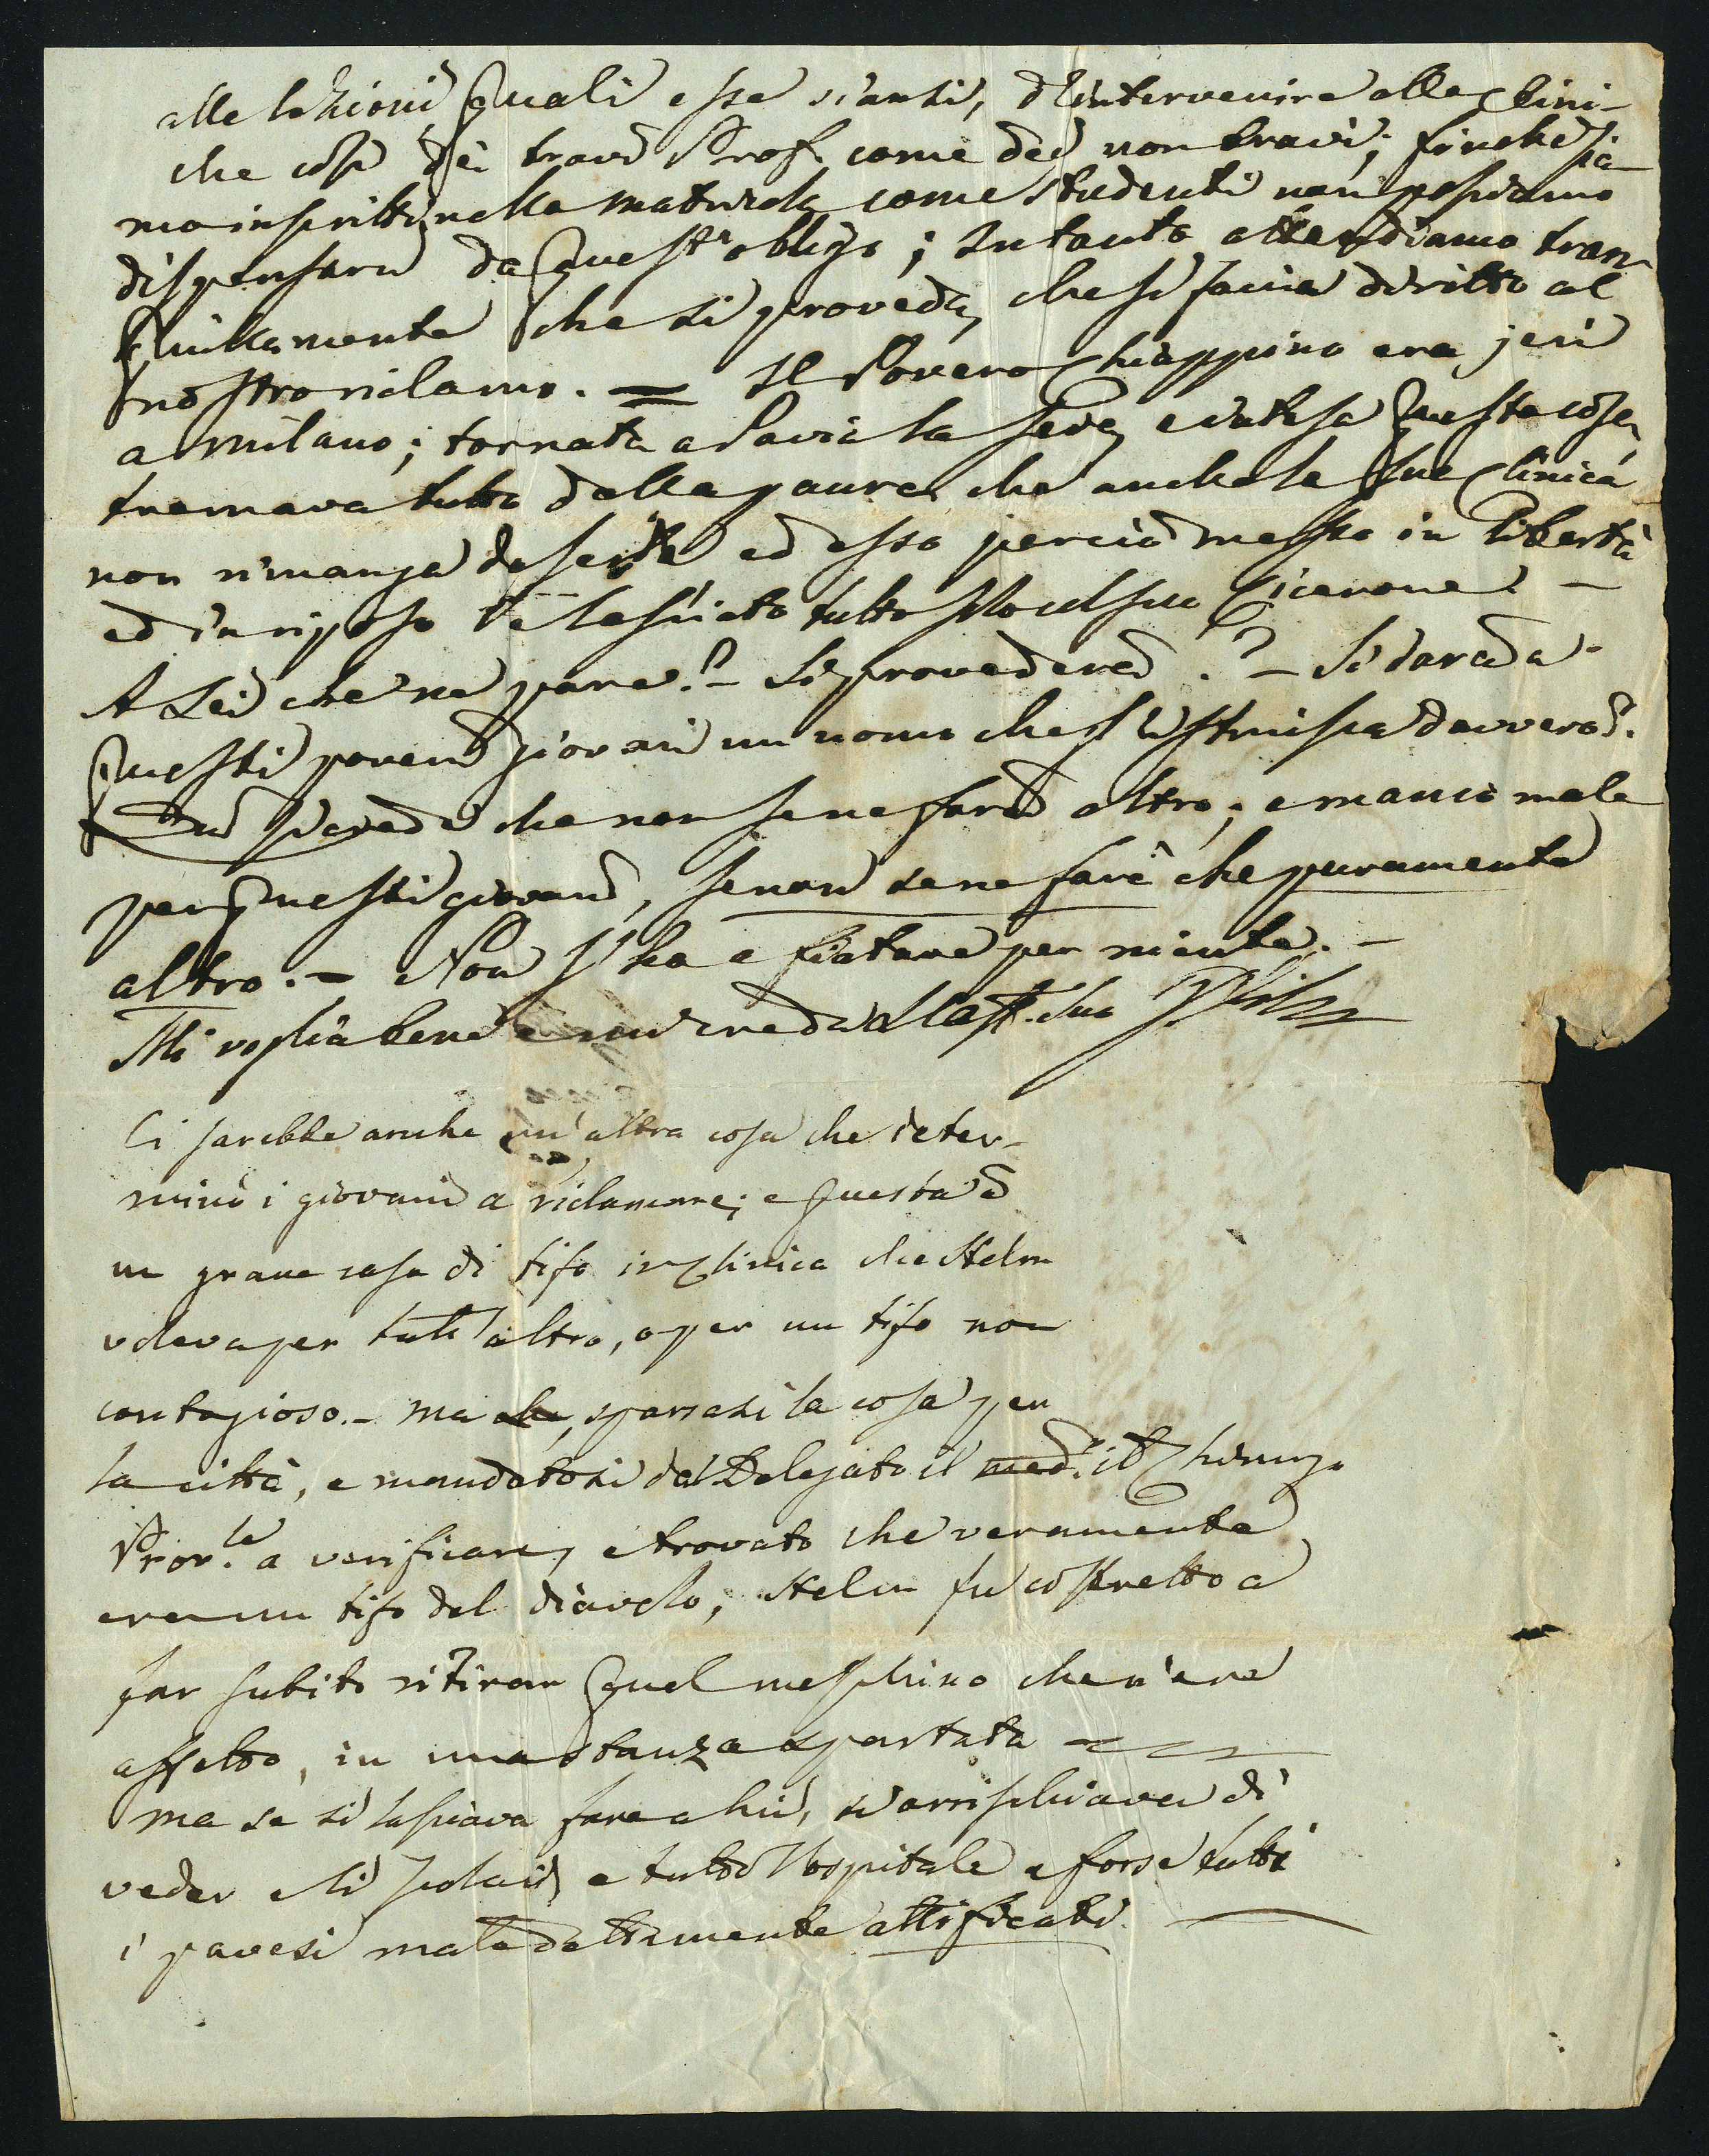 alle lezioni quali esse siansi, d'intervenire alle clini-
che così dei bravi Prof. come dei non bravi; finchè sia-
mo inscritti nella matricola come studenti non possiamo
dispensarci da quest'obbligo; Intanto attendiamo tran-
quillamente che si proveda, che si faccia diritto al
nostro riclamo. = Il Povero Chiappino era jeri
a Milano; tornato a Pavia la sera, e intesa questa cosa,
tremava tutto dalla paura che anche la sua clinica
non rimanga deserta ed esso perciò messo in libertà
ed in riposo e lasciato tutto solo col suo Cicerone. –
A Lei che ne pare? – Si provederà? – Si darà a
questi poveri giovani un uomo che gl'istruisca davvero?
Qui si crede che non se ne farà altro; e manco male
per questi giovani, se non se ne farà che puramente
altro. – Non s'ha a fiatare per niente. –
Mi voglia bene e mi creda
Ci sarebbe anche un'altra cosa che deter-
minò i giovani a riclamare; e questa è
un grave caso di tifo in clinica che Helm
voleva per tutt'altro, o per un tifo non
contagioso. – ma che, sparsasi la cosa per
la città, e mandatosi dal Delegato il med.º il Chirurgo
Prov.le a verificare, e trovato che veramente
era un tifo del diavolo, Helm fu costretto a
far subito ritirar quel meschino che n'era
affetto, in una stanza appartata –
ma se si lasciava fare a lui, si arrischiava di
veder e li scolari e tutto l'ospitale e forse tutti
i pavesi maledettamente attificati. –